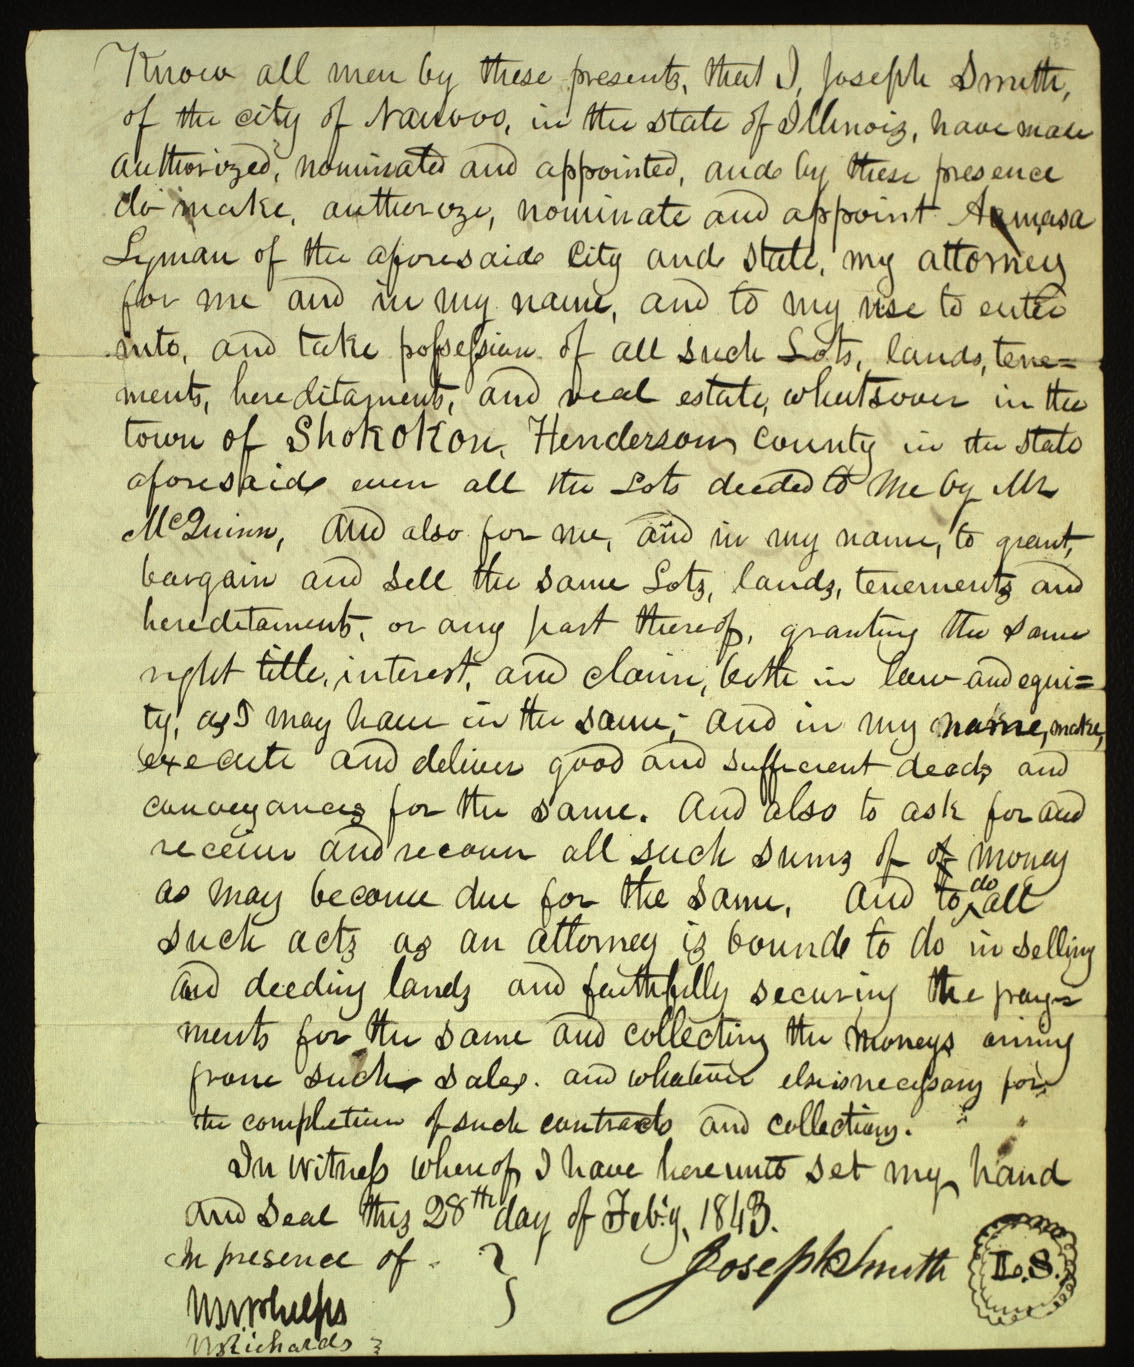 Know all men by these presents, that I, Joseph Smith,
of the city of Nauvoo, in the state of Illinois, have made
authorized, nominated and appointed, and by these presence
do make, authorize, nominate and appoint Amasa
Lyman of the aforesaid City and State, my attorney
for me and in my name, and to my use to enter
into, and take possession of all such Lots, lands, tene=
ments, hereditaments, and real estate, whatsover in the
town of Shokokon, Henderson county in the state
aforesaid even all the Lots deeded to me by Mr
McQuinn, and also for me, and in my name, to grant,
bargain and sell the same Lots, lands, tenements and
hereditaments, or any part thereof, granting the same
right title, interest, and claim, both in law and equi=
ty, as I may have in the same; and in my name, make,
execute and deliver good and sufficient deeds and
conveyances for the same. And also to ask for and
receive and recover all such sums of of money
as may become due for the same, and to do all
such acts as an attorney is bound to do in selling
and deeding lands and faithfully securing the pay=
ments for the same and collecting the moneys arising
from such sales. and whatever else is necessary for
the completion of such contracts and collections.
In witness whereof I have hereunto set my hand
and seal this 28th day of Feb'y, 1843.
In presence of } Joseph Smith L.S.
W. W. Phelps
W Richards